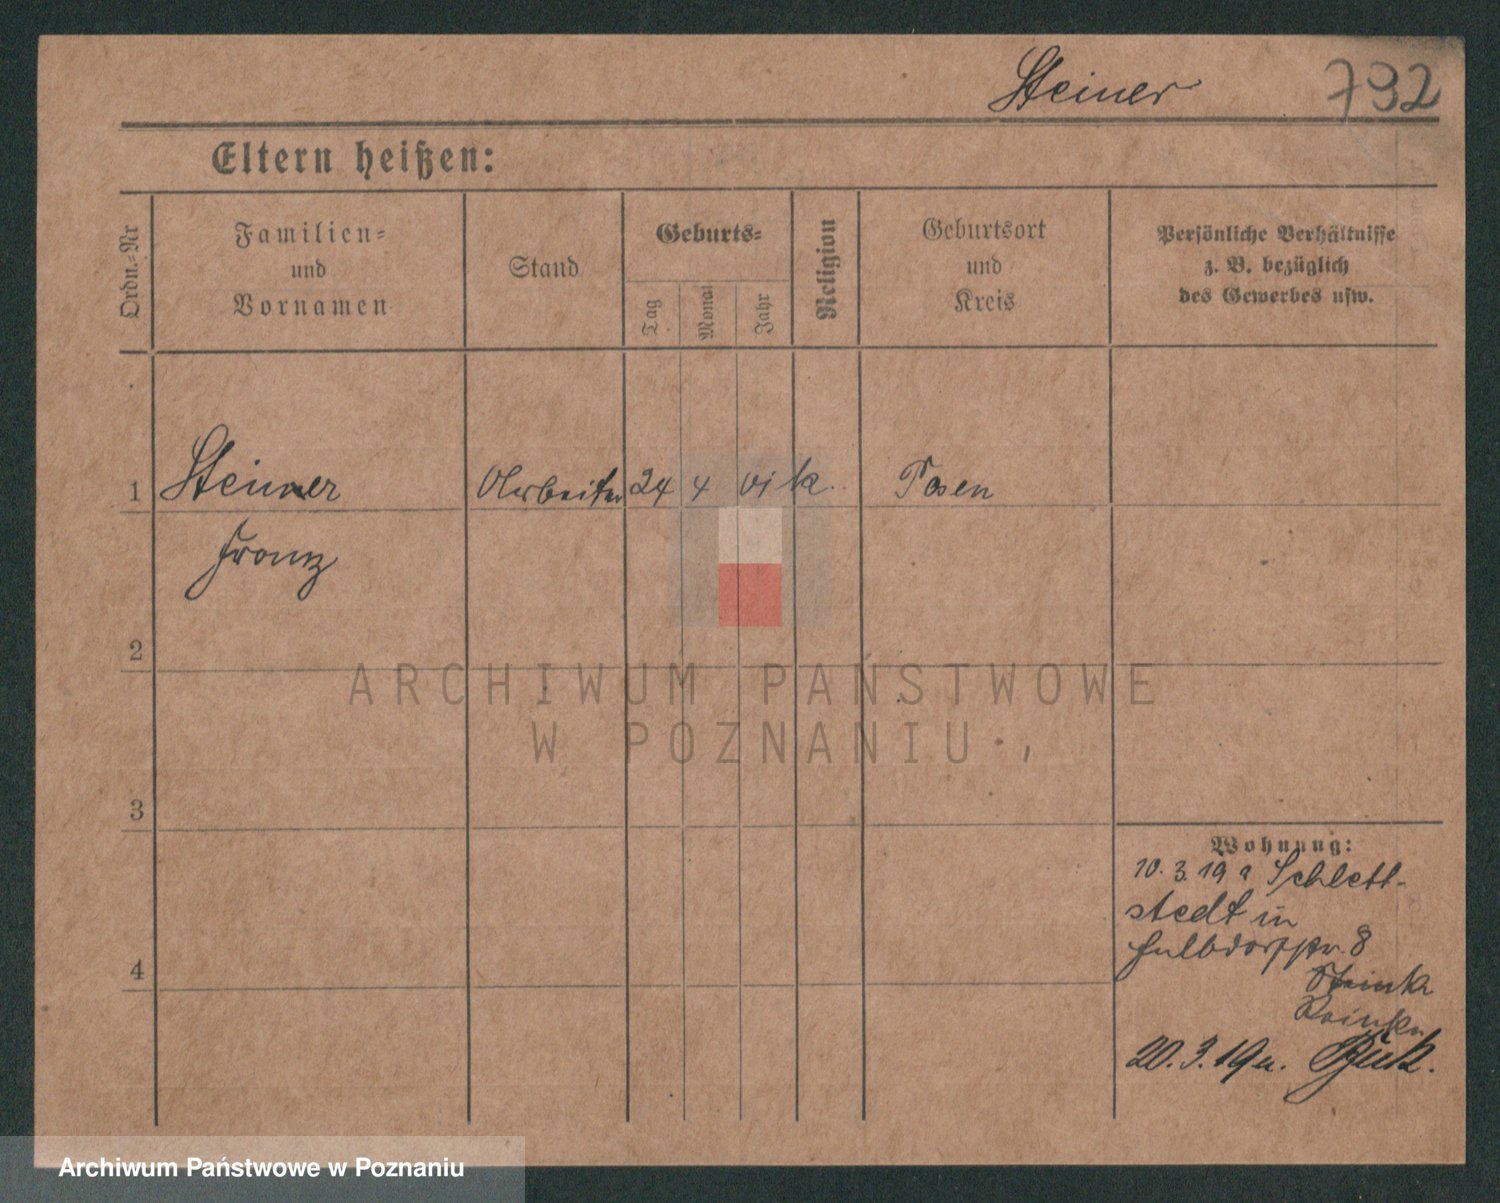 Steiner 792
Eltern heißen:
Ordn.-Nr
Familien-
und
Vornamen
Stand
Geburts-
Tag
Monat
Jahr
Religion
Geburtsort
und
Kreis
Persönliche Verhältnisse
z. B. bezüglich
des Gewerbes usw.
1 Steiner Arbeiter 24 4 01 k. Posen
Franz
2
ARCHIWUM PAŃSTWOWE
W POZNANIU
3
Wohnung:
10. 3. 19 a Schlett-
stedt in
8
4
20. 3. 19 a.
Archiwum Państwowe w Poznaniu